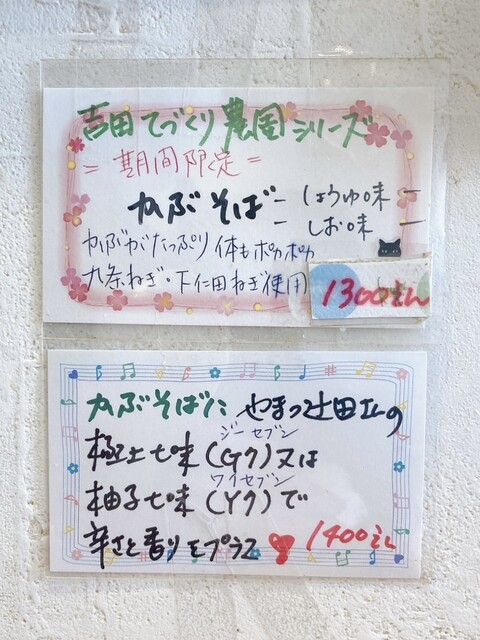 吉田てづくり農園シリーズ
= 期間限定 =
かぶそば - しょうゆ味 -
- しお味 -
かぶがたっぷり 体もポカポカ
九条ねぎ・下仁田ねぎ使用
1300えん
かぶそばに やまつ辻田さんの
極上七味(G7)又は
ジーセブン
柚子七味(Y7)で
ワイセブン
辛さと香りをプラス
1400えん